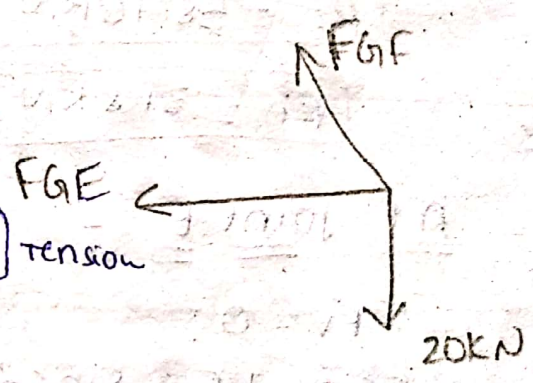 FGF
FGE
Tension
20KN